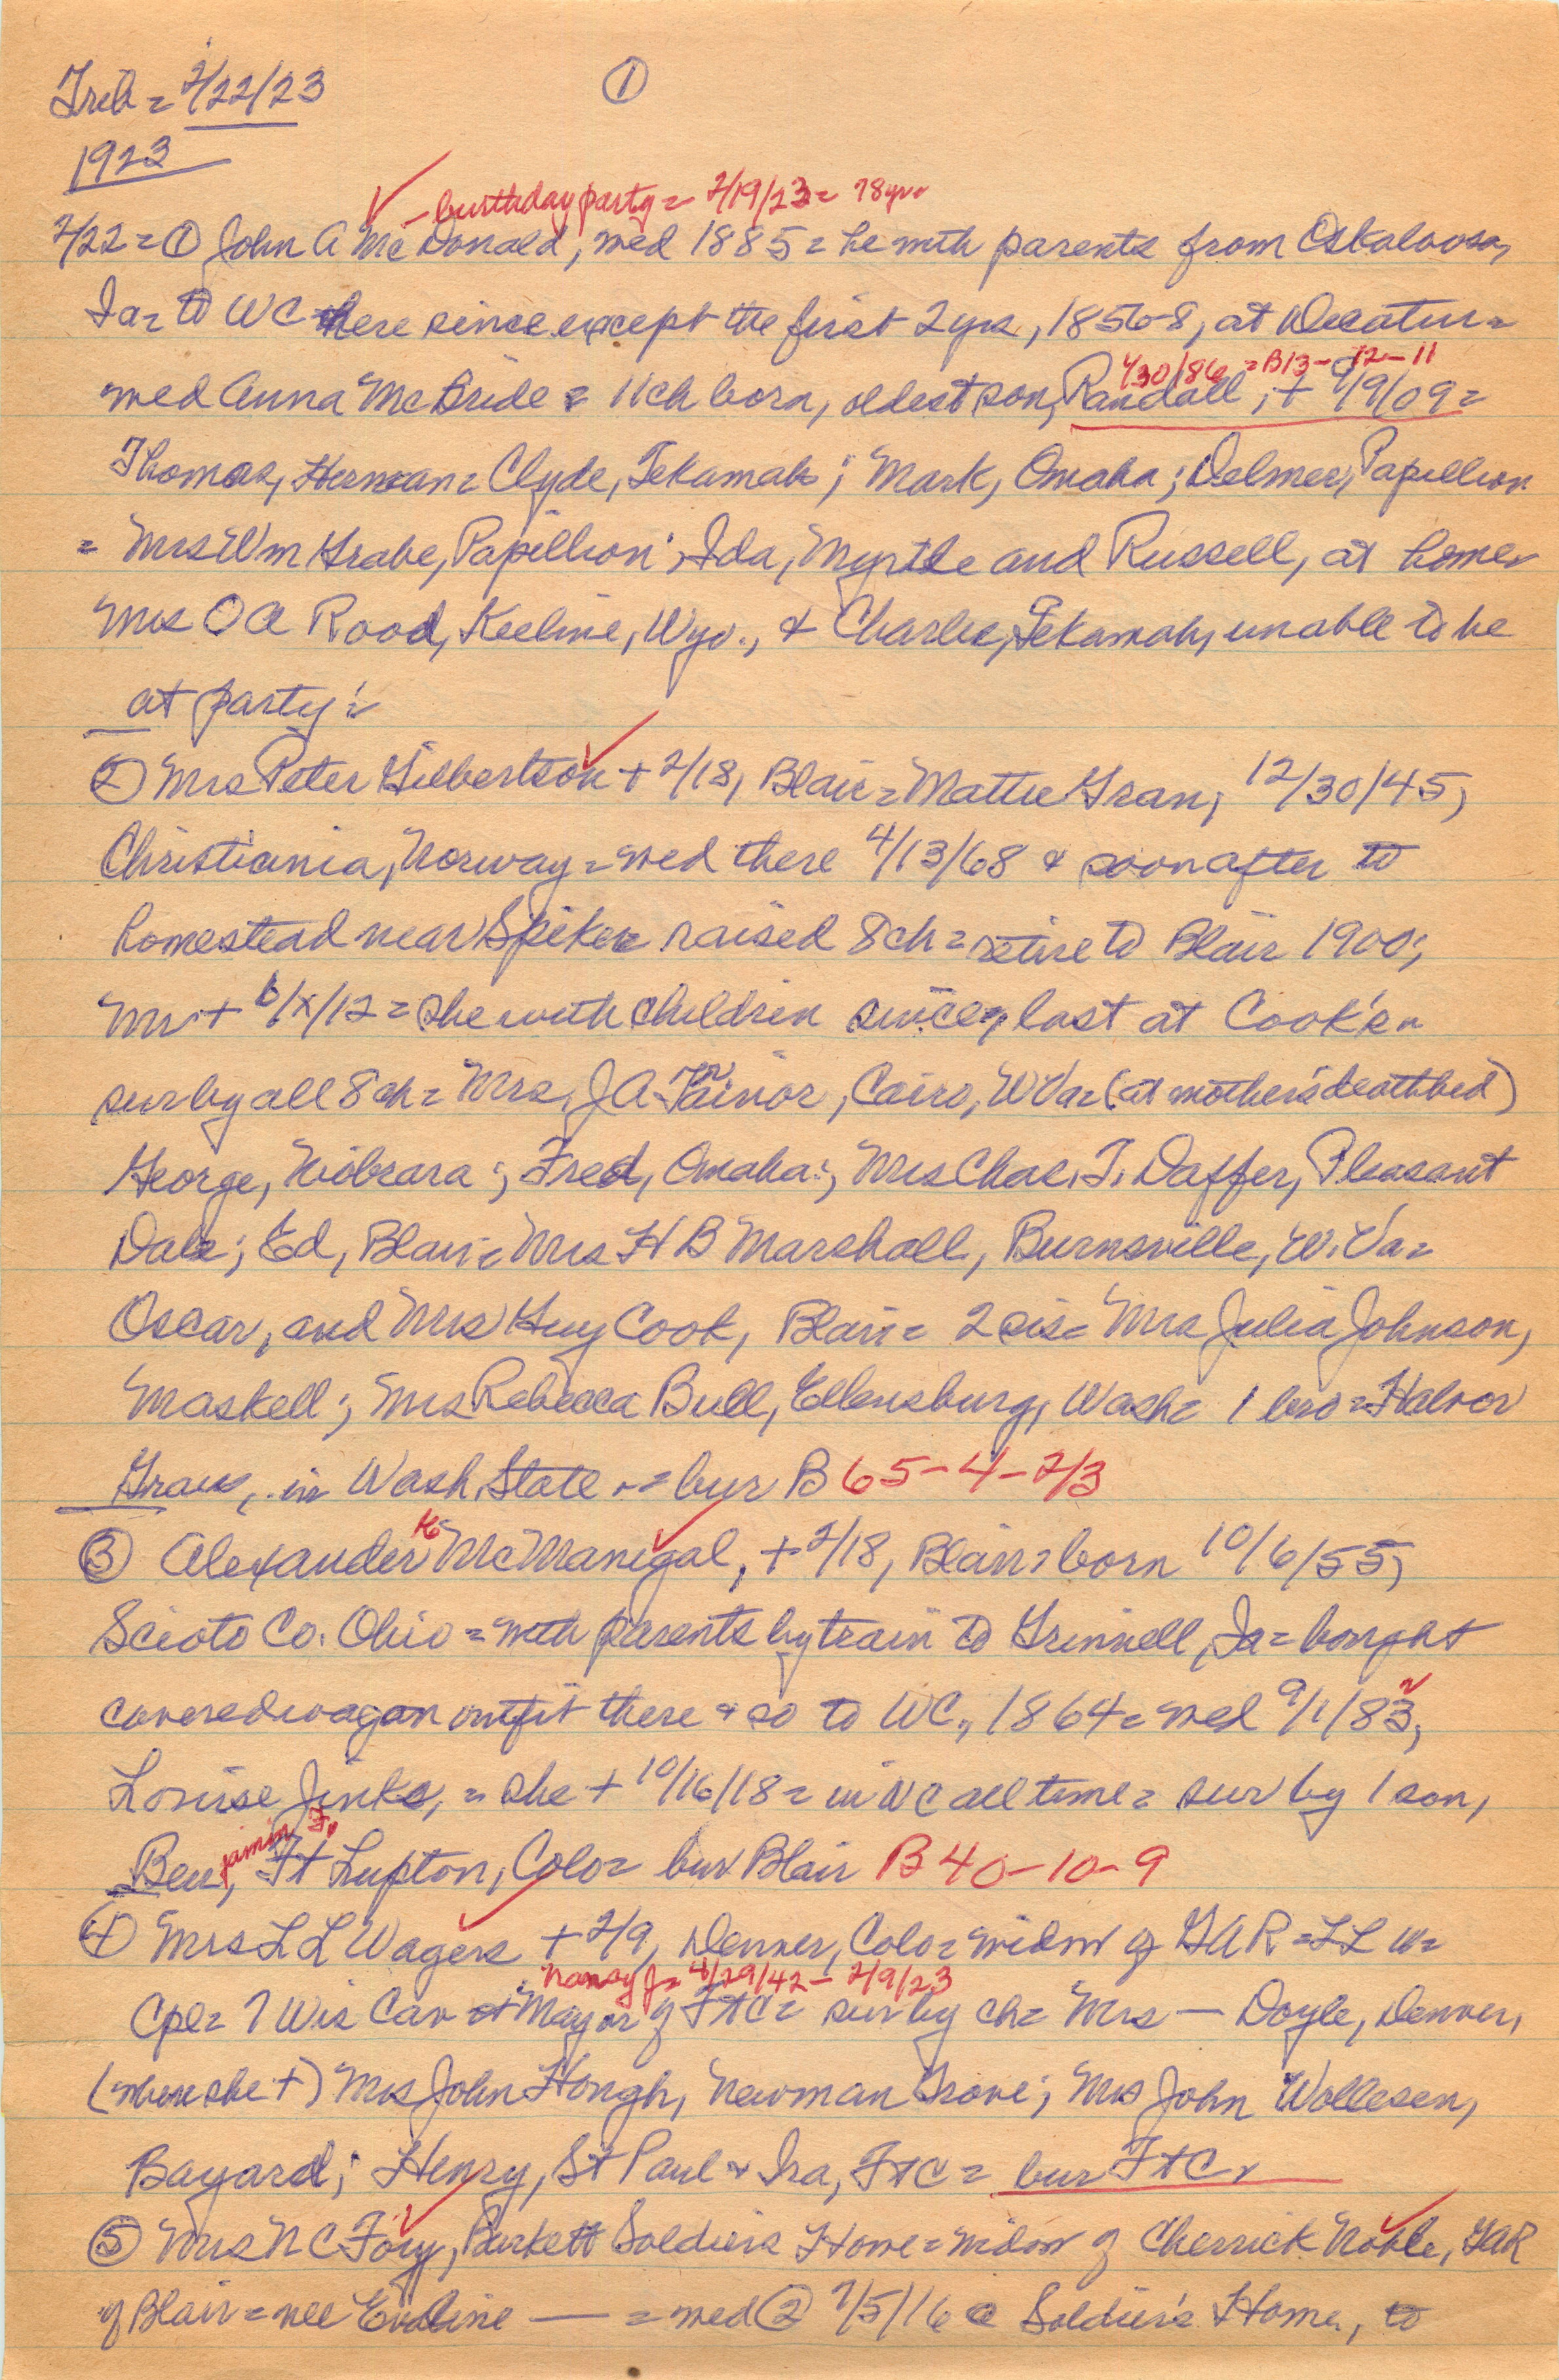 Trib = 2/22/23
①
1923
✓ - birthday party = 2/19/23 = 78 yrs
2/22 = ① John A McDonald, wed 1885 = he with parents from Oskaloosa,
Ia = to WC = here since except the first 2 yrs, 1856-8, at Decatur =
1/30/86 = B13-12-11
wed Anna McBride = 11 ch born, oldest son, Randall, + 1/9/09 =
Thomas, Herman = Clyde, Tekamah; Mark, Omaha; Delmer, Papillion
= Mrs Wm Grabe, Papillion; Ida, Myrtle and Russell, at home =
Mrs O A Rood, Keeline, Wyo., & Charlie, Tekamah, unable to be
at party =
② Mrs Peter Gilbertson + 2/18, Blair = Mattie Gran, 12/30/45,
Christiania, Norway = wed there 4/13/68 & soon after to
homestead near Spiker = raised 8 ch = retire to Blair 1900;
Mr + 6/x/12 = she with children since, last at Cook's =
sur by all 8 ch = Mrs. J A Trainor, Cairo, W Va = (at mother's deathbed)
George, Niobrara; Fred, Omaha; Mrs Chas. T. Daffer, Pleasant
Dale; Ed, Blair = Mrs H B Marshall, Burnsville, W. Va =
Oscar, and Mrs Guy Cook, Blair = 2 sis = Mrs Julia Johnson,
Maskell; Mrs Rebecca Bull, Ellensburg, Wash = 1 bro = Halvor
Graus, in Wash. State = bur B 65-4-2/3
③ Alexander K McManigal, + 2/18, Blair = born 10/6/55,
Scioto Co. Ohio = with parents by train to Grinnell, Ia = bought
covered wagon outfit there & so to WC, 1864 = wed 9/1/83, 2
Louise Jinks, = she + 10/16/18 = in WC all time = sur by 1 son,
Benjamin F., Ft Lupton, Colo = bur Blair B 40-10-9
④ Mrs L L Wagers + 2/9, Denver, Colo = widow of GAR = L L W =
Nancy J = 4/29/42 - 2/9/23
Cpl = 7 Wis Cav = Mayor of Ft C = sur by ch = Mrs — Doyle, Denver,
(where she +) Mrs John Hough, Newman Grove; Mrs John Wollesen,
Bayard; Henry, St Paul & Ira, Ft C = bur Ft C
⑤ Mrs N C Fory, Burkett Soldiers Home = widow of Cherrick Noble, GAR
of Blair = nee Evaline — = wed ② 7/5/16 @ Soldier's Home, to